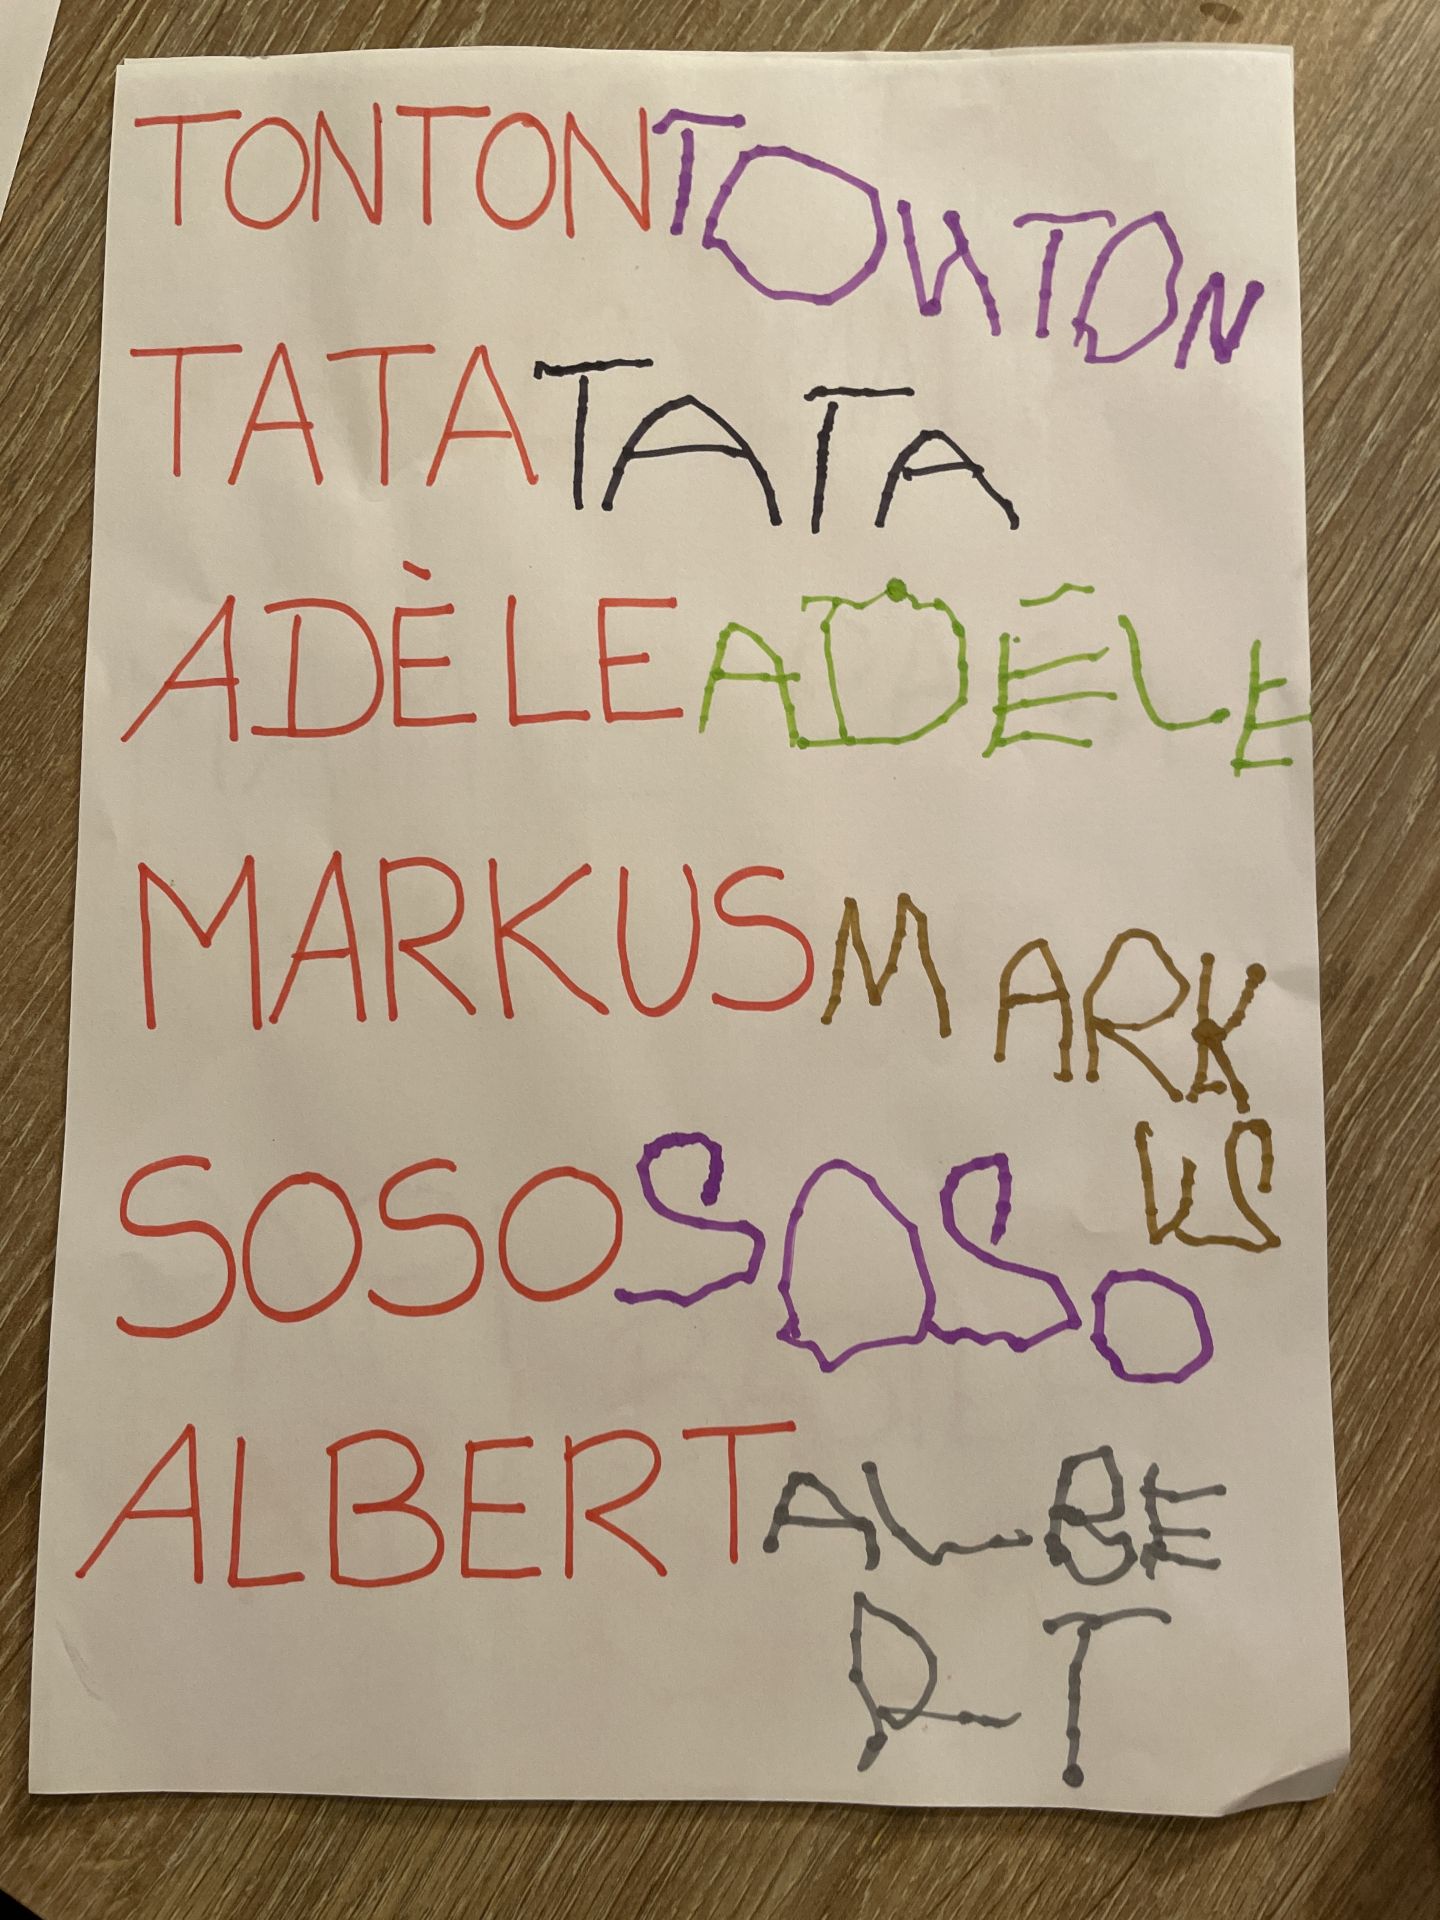 TONTON TONTON
TATA TATA
ADÈLE ADÉLE
MARKUS MARK
US
SOSO SOSO
ALBERT ALBE
RT